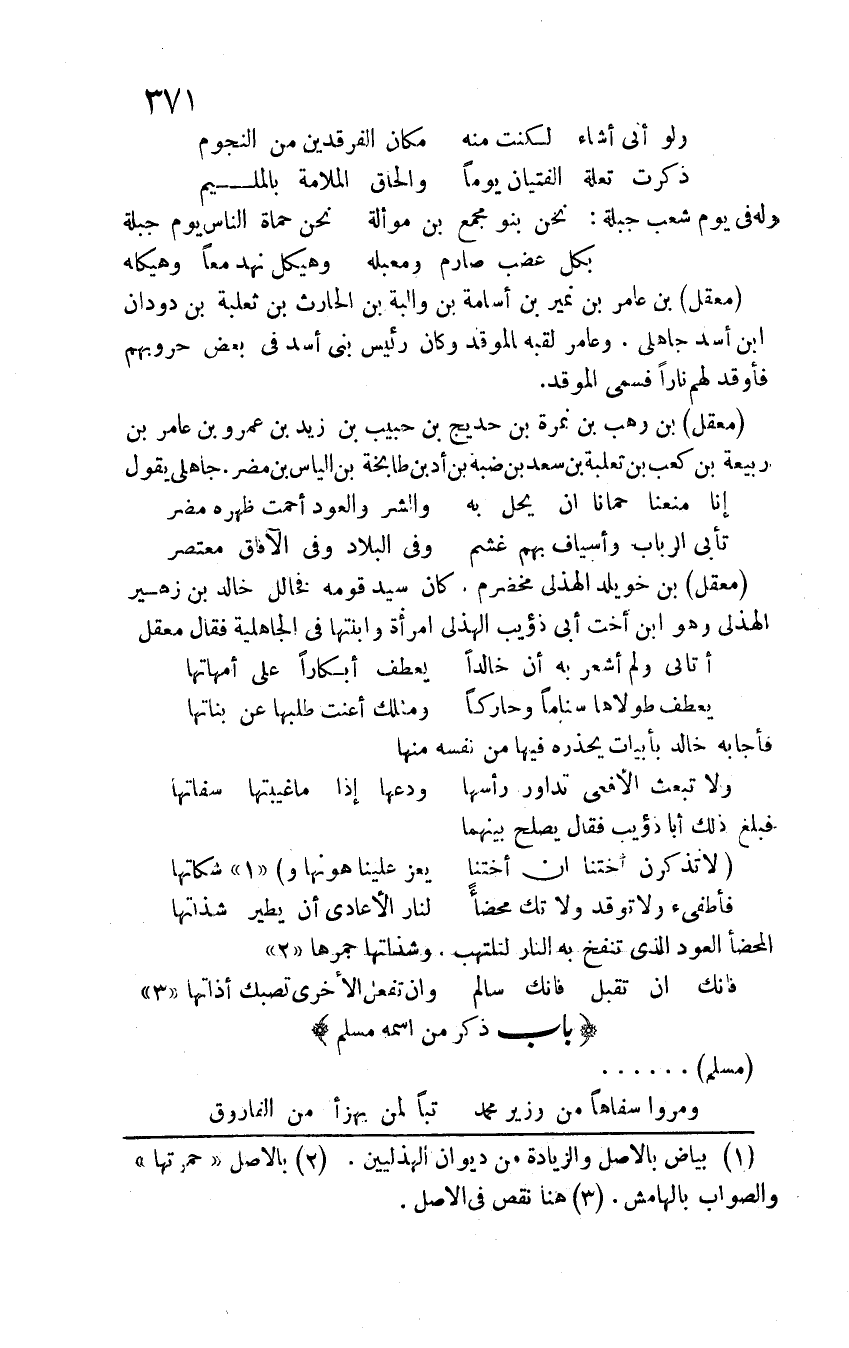 ٣٧١
ولو أنى أشاء لكنت منه مكان الفرقدين من النجوم
ذكرت تعلة الفتيان يوماً والحاق الملامة بالمليم
وله فى يوم شعب جبلة : نحن بنو مجمع بن موألة نحن حماة الناس يوم جبلة
بكل عضب صارم ومعبله وهيكل نهد معاً وهيكله
(معقل) بن عامر بن نمير بن أسامة بن والبة بن الحارث بن ثعلبة بن دودان
ابن أسد جاهلى . وعامر لقبه الموقد وكان رئيس بنى أسد فى بعض حروبهم
فأوقد لهم ناراً فسمى الموقد.
(معقل) بن وهب بن نمرة بن حديج بن حبيب بن زيد بن عمرو بن عامر بن
ربيعة بن كعب بن ثعلبة بن سعد بن ضبة بن أد بن طابخة بن الياس بن مضر . جاهلى يقول
إنا منعنا حمانا ان يحل به والشر والعود أحمت ظهره مضر
تأبى الرباب وأسياف بهم غشم وفى البلاد وفى الآفاق معتصر
(معقل) بن خويلد الهذلى مخضرم . كان سيد قومه فخالل خالد بن زهير
الهذلى وهو ابن أخت أبى ذؤيب الهذلى امرأة وابنتها فى الجاهلية فقال معقل
أتانى ولم أشعر به أن خالداً يعطف أبكاراً على أمهاتها
يعطف طولاها سناماً وحاركاً ومثلك أعنت طلبها عن بناتها
فأجابه خالد بأبيات يحذره فيها من نفسه منها
ولا تبعث الأفعى تداور رأسها ودعها إذا ماغيبتها سفاتها
فبلغ ذلك أبا ذؤيب فقال يصلح بينهما
( لاتذكرن أختنا ان أختنا يعز علينا هونها و) «١» شكاتها
فأطفىء ولا توقد ولا تك محضأً لنار الأعادى أن يطير شذاتها
المحضأ العود الذى تنفخ به النار لتلتهب . وشذاتها جمرها «٢»
فانك ان تقبل فانك سالم وان تفعل الأخرى تصبك أذاتها «٣»
﴿ باب ذكر من اسمه مسلم ﴾
(مسلم) . . . . . .
ومروا سفاهاً من وزير محمد تباً لمن يهزأ من الفاروق
(١) بياض بالاصل والزيادة من ديوان الهذليين . (٢) بالاصل « جمرتها »
والصواب بالهامش . (٣) هنا نقص فى الاصل .